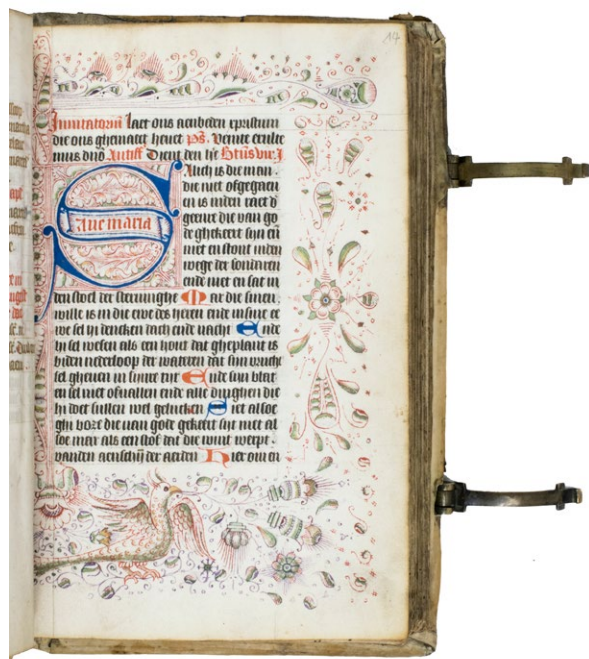 17
Inuitatoriū laet ons aenbeden cpristum
die ons ghemaect heuet ps. Venite exulte
mus dño Antiff Dient den hē
Alich is die man
die niet ofgegaen
en is inden raet d
geenre die van go
de ghekeert syn en
aue maria
niet en stont inden
wege der sondaren
ende niet en sat in
den stoel der steruinghe Mar die sinen
wille is in die ewe des heren ende in sinre e
we sel hi dencken dach ende nacht Ende
hi sel wesen als een hout dat gheplant is
biden nederloop der wateren dat syn vrucht
sel gheuen in sinre tyt Ende syn blat
en sel niet ofuallen ende alle dinghen die
hi doet sullen wel gheluken Niet alsoe
ghi boze die van gode gekeert syt niet al
soe mar als een stof dat die wint werpt
vanden aenschyn der aerden Hier om en